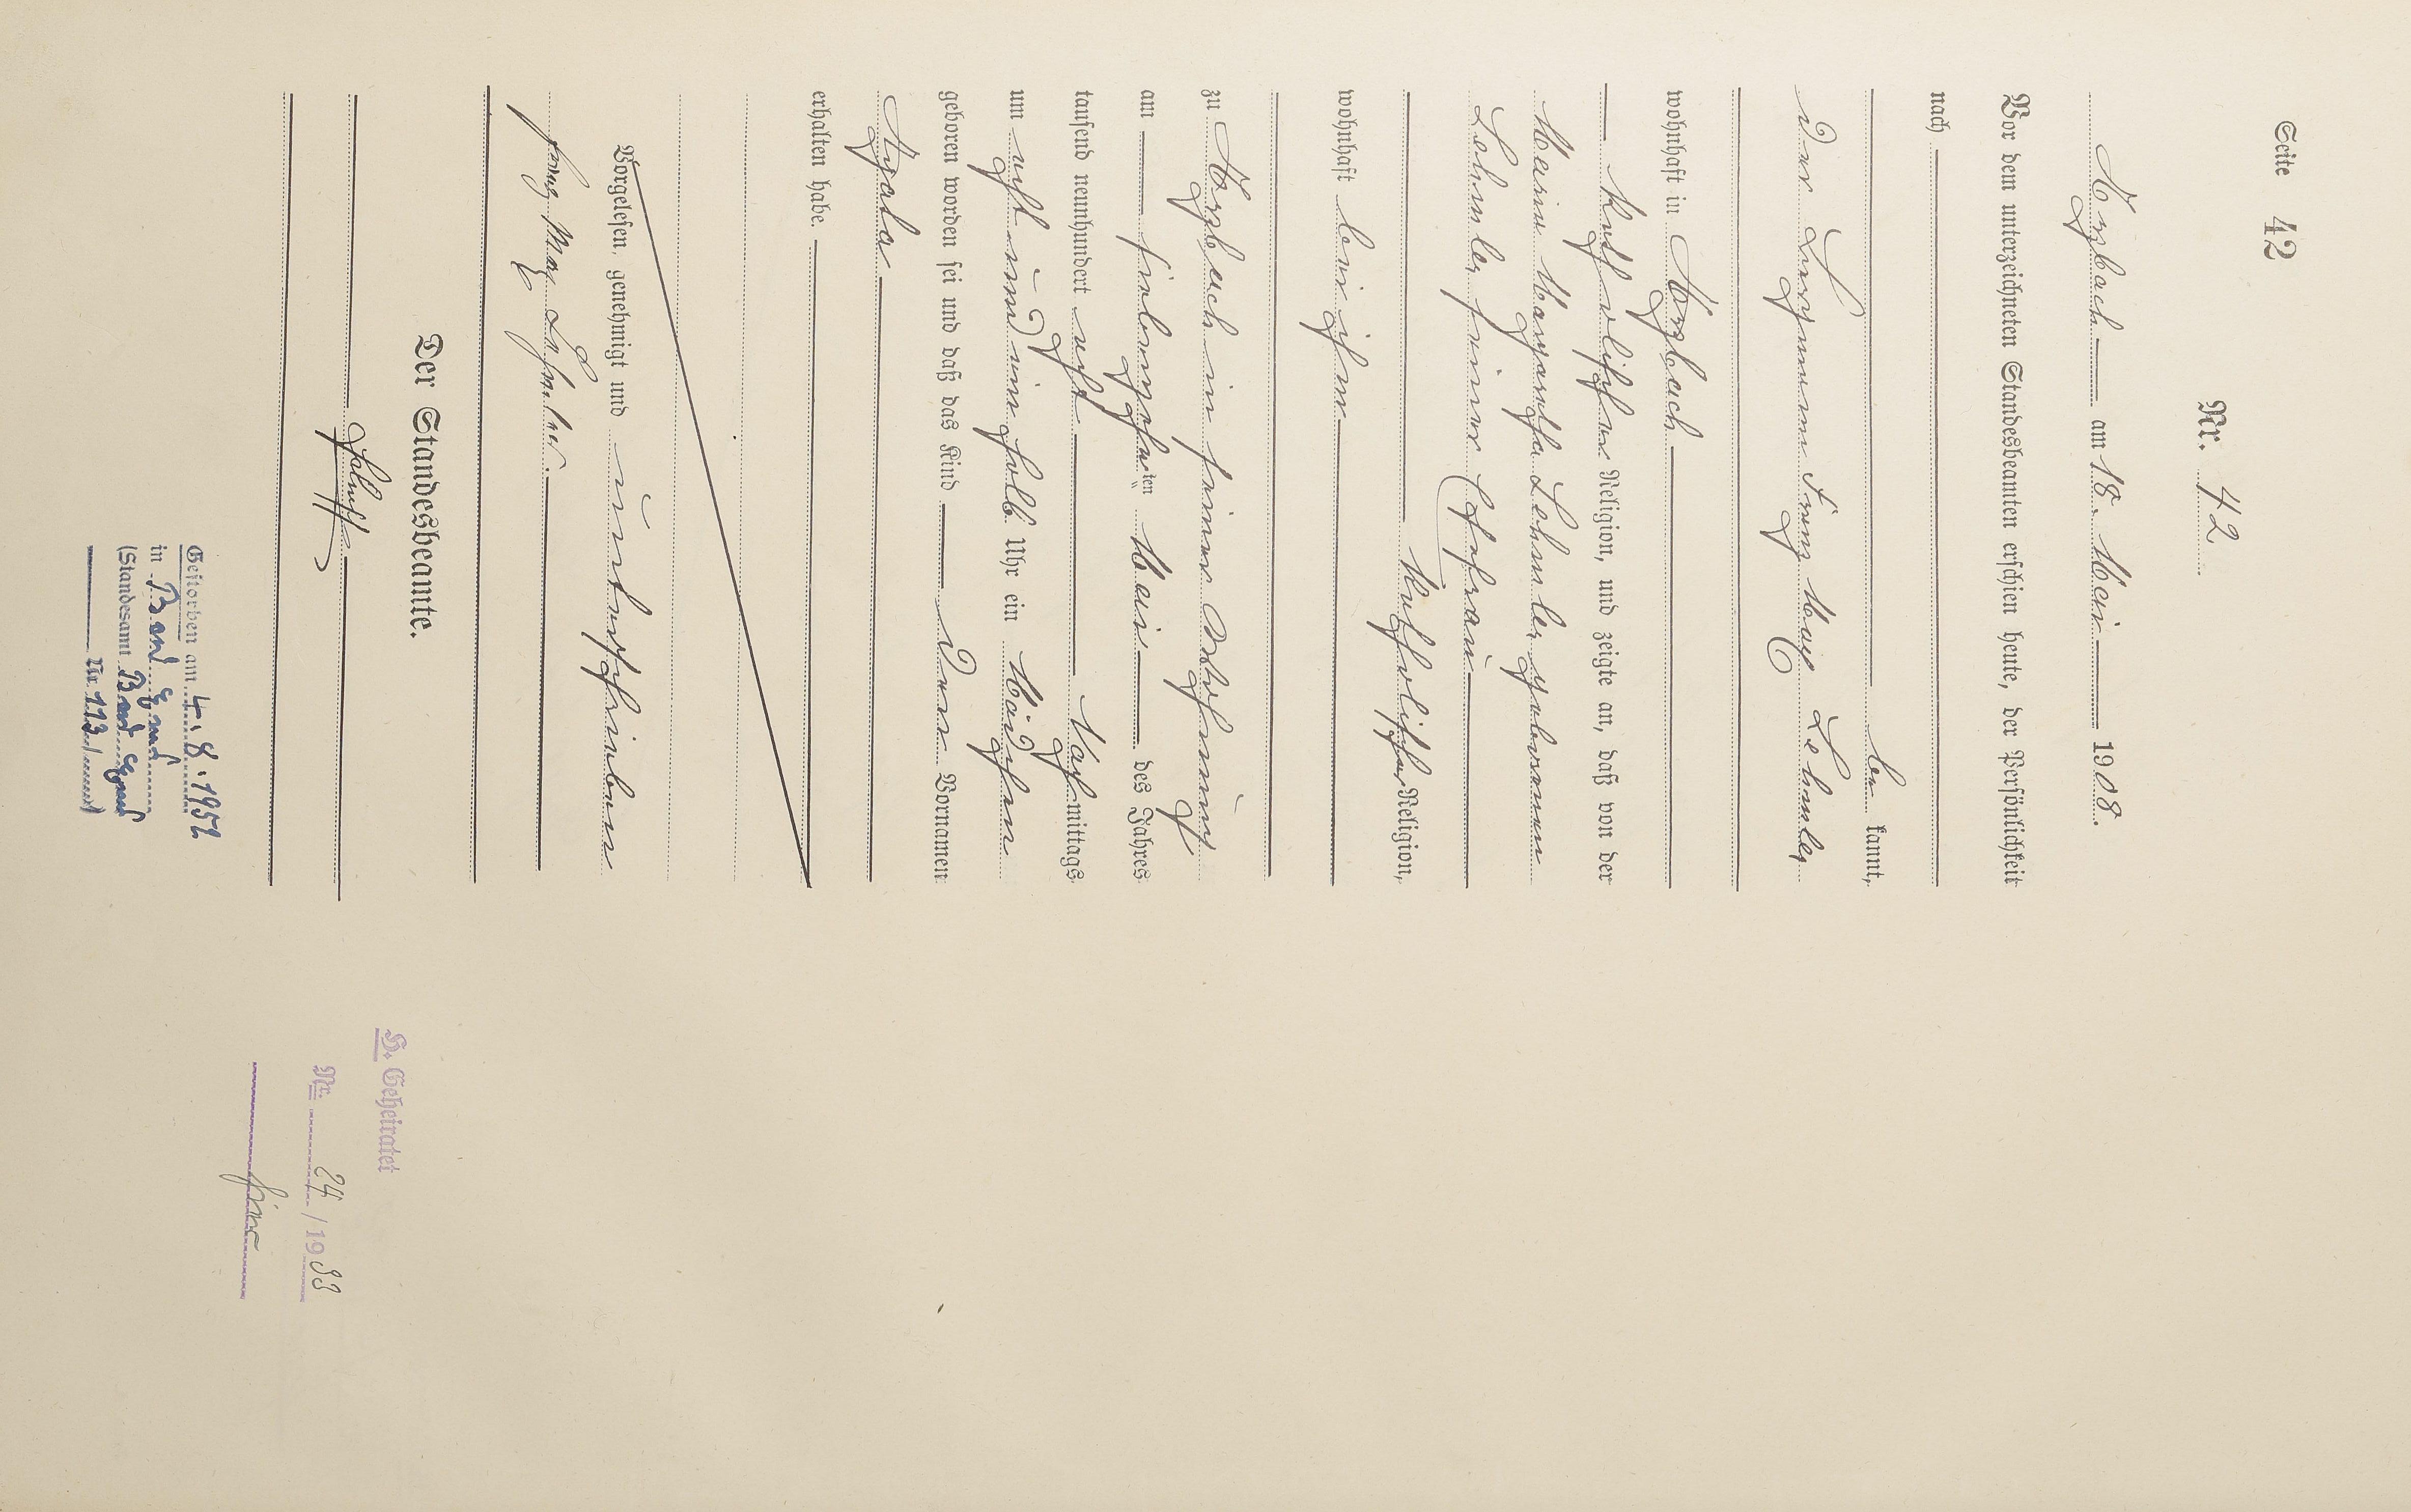 Seite 42
Nr. 42
Morzbach am 18. Mai 1908.
Vor dem unterzeichneten Standesbeamten erschien heute, der Persönlichkeit
nach
be kannt,
Der Bergmann Franz Max
wohnhaft in Morzbach
katholischer Religion, und zeigte an, daß von der
Maria Margaretha geborenen
seiner Ehefrau
katholischer Religion,
wohnhaft bei ihm
zu Morzbach in seiner Wohnung
am siebenzehnten Mai des Jahres
tausend neunhundert acht Nachmittags
um acht und ein halb Uhr ein Mädchen
geboren worden sei und daß das Kind den Vornamen
Agatha
erhalten habe.
Vorgelesen, genehmigt und unterschrieben
Franz Max
Der Standesbeamte.
Gestorben am 4.8.1952
in Bad Ems
(Standesamt Bad Ems
Nr. 113/ )
H. Geheiratet
Nr. 24 / 1933
hier